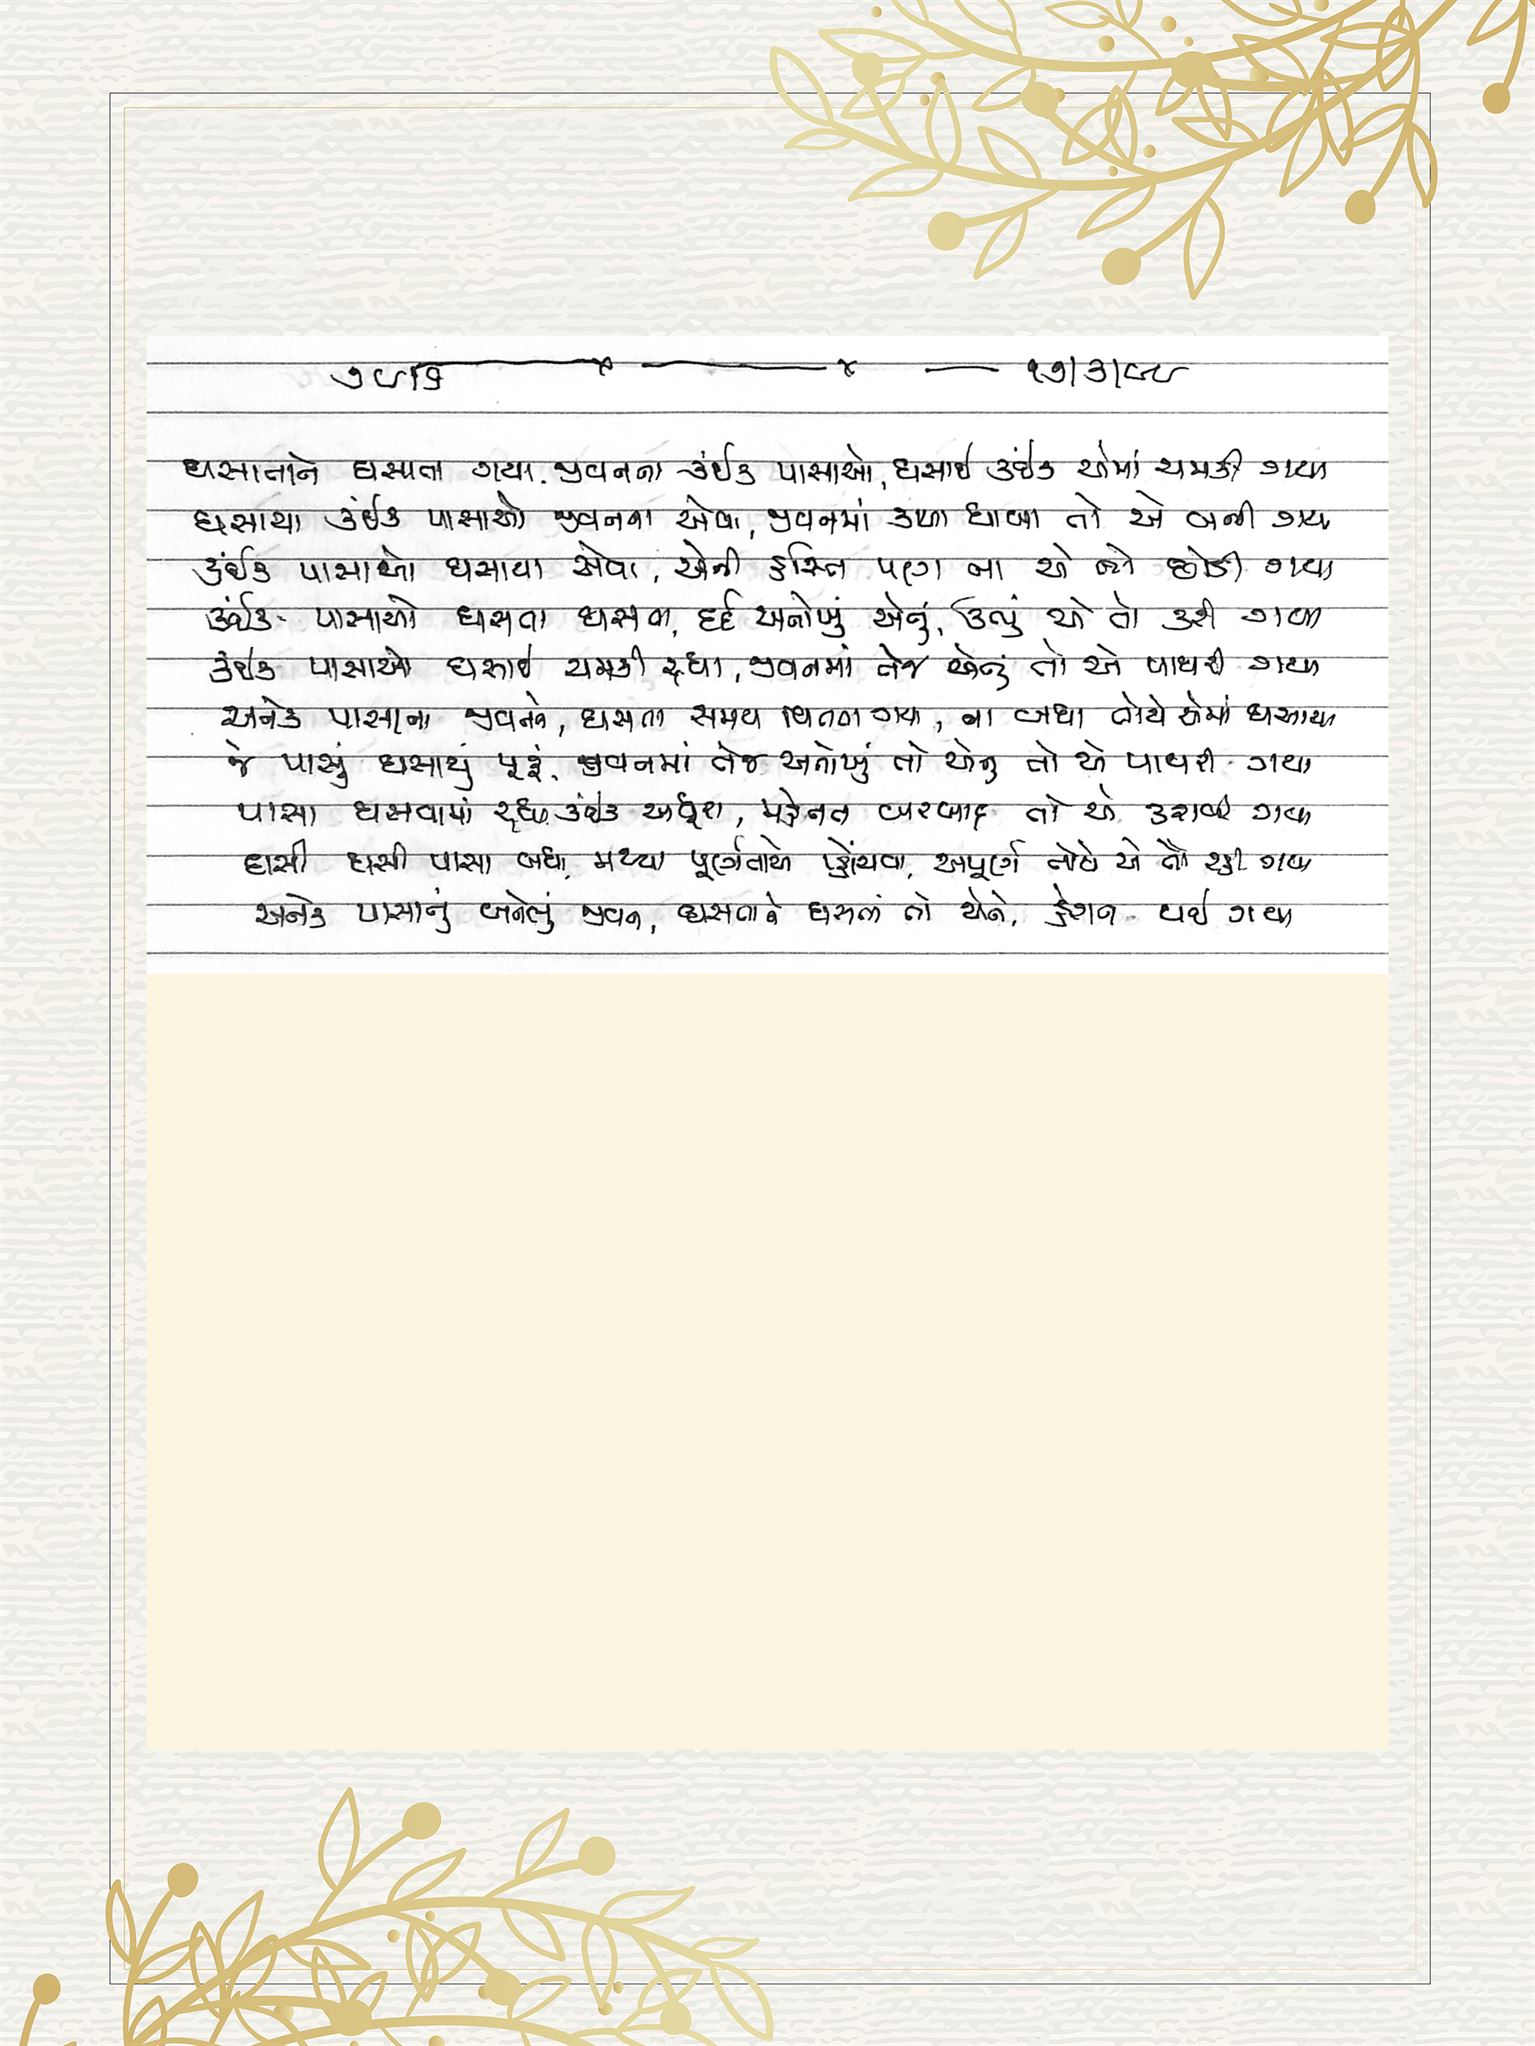 ૧૭/૩/૯૮
ઘસાતાને ઘસાતા ગયા જીવનના કંઈક પાસાઓ, ઘસાઈ કંઈક એમાં ચમકી ગયા
ઘસાયા કંઈક પાસાઓ જીવનના એવા, જીવનમાં કાળા ધાબા તો એ બની ગયા
કંઈક પાસાઓ ઘસાયા એવા, એની હસ્તિ પણ ના એ તો છોડી ગયા
કંઈક પાસાઓ ઘસતા ઘસતા, દર્દ અનોખું એનું, ઊભું એ તો કરી ગયા
કંઈક પાસાઓ ઘસાઈ ચમકી રહ્યા, જીવનમાં તેજ એનું તો એ પાથરી ગયા
અનેક પાસાના જીવનને, ઘસતા સમય વિતતા ગયા, ના બધા તોયે એમાં ઘસાયા
જે પાસું ઘસાયું પૂરૂં, જીવનમાં તેજ અનોખું તો એનુ તો એ પાથરી ગયા
પાસા ઘસવામાં રહ્યા કંઈક અધૂરા, મહેનત બરબાદ તો એ કરાવી ગયા
ઘસી ઘસી પાસા બધા, મથ્યા પૂર્ણતાએ પ્હોંચવા, અપૂર્ણ તોયે એ તો રહી ગયા
અનેક પાસાનું બનેલું જીવન, ઘસતાને ઘસતાં તો એને, હેરાન થઈ ગયા